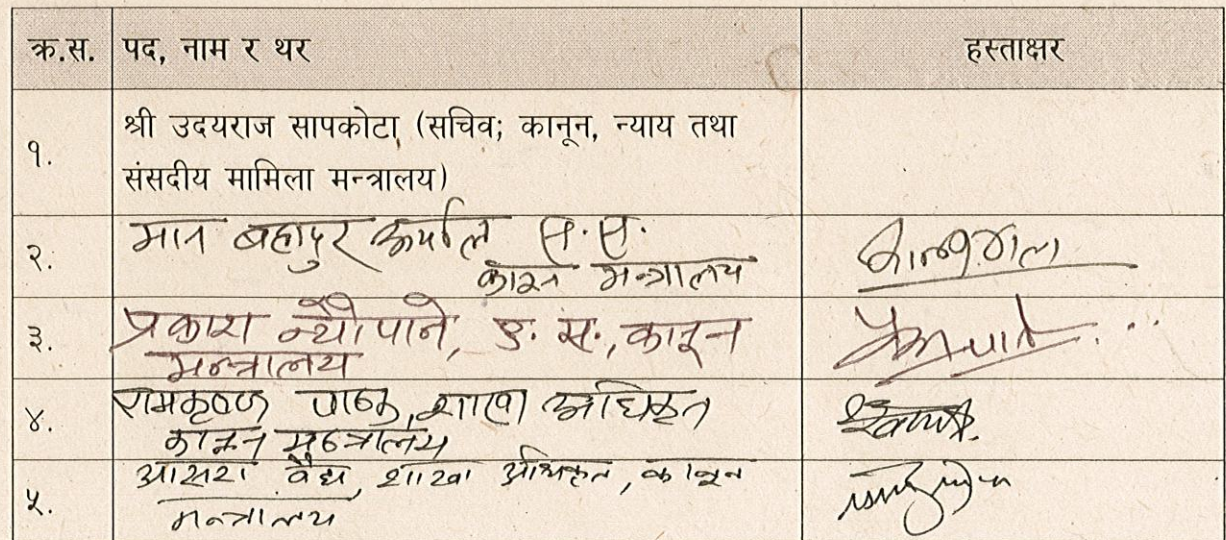 क्र.स. पद, नाम र थर हस्ताक्षर
१. श्री उदयराज सापकोटा (सचिव; कानून, न्याय तथा
संसदीय मामिला मन्त्रालय)
२. मान बहादुर अर्याल स.स.
कानून मन्त्रालय
३. प्रकाश न्यौपाने, उ. स., कानून
मन्त्रालय
४. रामकृष्ण पाठक, शाखा अधिकृत
कानून मन्त्रालय
५. आसरा वैद्य, शाखा अधिकृत, कानून
मन्त्रालय